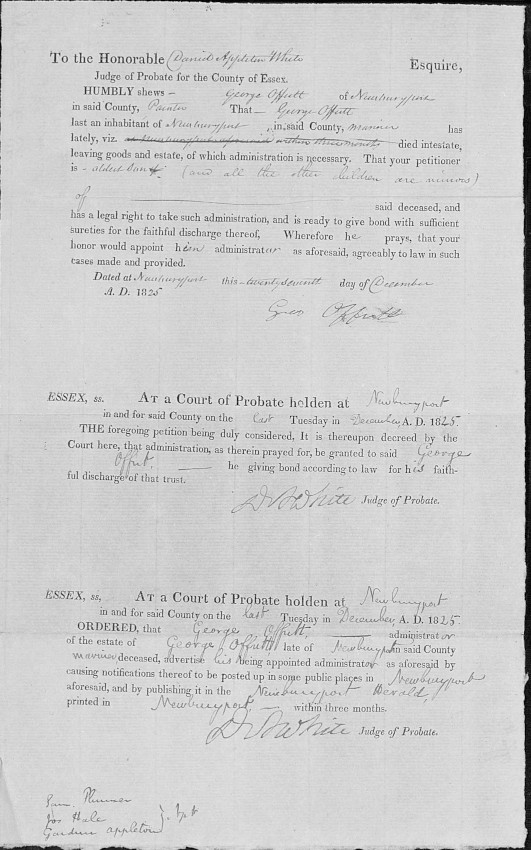 To the Honorable Daniel Appleton White Esquire,
Judge of Probate for the County of Essex.
HUMBLY shews – George Offutt of Newburyport
in said County, Painter That – George Offutt
last an inhabitant of Newburyport in said County, mariner has
lately, viz. died intestate,
leaving goods and estate, of which administration is necessary. That your petitioner
is – oldest son (and all the other children are minors)
of said deceased, and
has a legal right to take such administration, and is ready to give bond with sufficient
sureties for the faithful discharge thereof, Wherefore he prays, that your
honor would appoint him administrator as aforesaid, agreeably to law in such
cases made and provided.
Dated at Newburyport this – twenty seventh day of December
A. D. 1825
Geo Offutt
ESSEX, ss. AT a Court of Probate holden at Newburyport
in and for said County on the last Tuesday in December, A. D. 1825.
THE foregoing petition being duly considered, It is thereupon decreed by the
Court here, that administration, as therein prayed for, be granted to said George
Offutt, he giving bond according to law for his faith-
ful discharge of that trust.
D A White Judge of Probate.
ESSEX, ss. AT a Court of Probate holden at Newburyport
in and for said County on the last Tuesday in December, A. D. 1825.
ORDERED, that George Offutt, administrator
of the estate of George Offutt late of Newburyport in said County
mariner deceased, advertise his being appointed administrator as aforesaid by
causing notifications thereof to be posted up in some public places in Newburyport
aforesaid, and by publishing it in the Newburyport Herald,
printed in Newburyport, – within three months.
D A White Judge of Probate.
Sam. Plumer
Jos Hale
Gardner Appleton